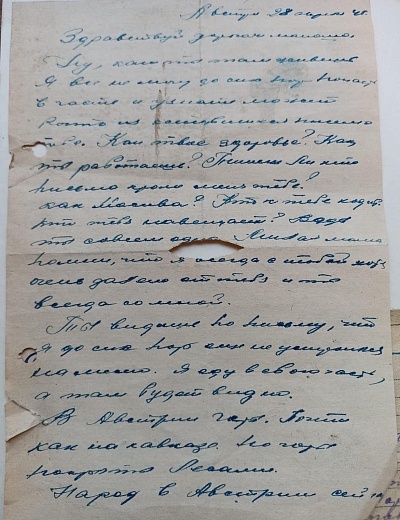 Австрия 28 апреля 45.
Здравствуй дорогая мамаша.
Ну, как ты там живешь
Я все не могу до сих пор попасть
в часть и узнать может
есть из
тебе. Как твое здоровье? Как
ты работаешь? Пишет ли кто
письма кроме меня тебе?
как Москва? Кто к тебе ходит
кто тебя навещает?
ты совсем одна. Милая мама
помни, что я всегда с тобой хоть
очень далеко от тебя и ты
всегда со мной.
Ты видишь по письму, что
я до сих пор еще не устроился
на место. Я еду в свою часть,
а там будет видно.
В Австрии горы. Почти
как на кавказе. Но горы
покрыты лесами.
Народ в Австрии